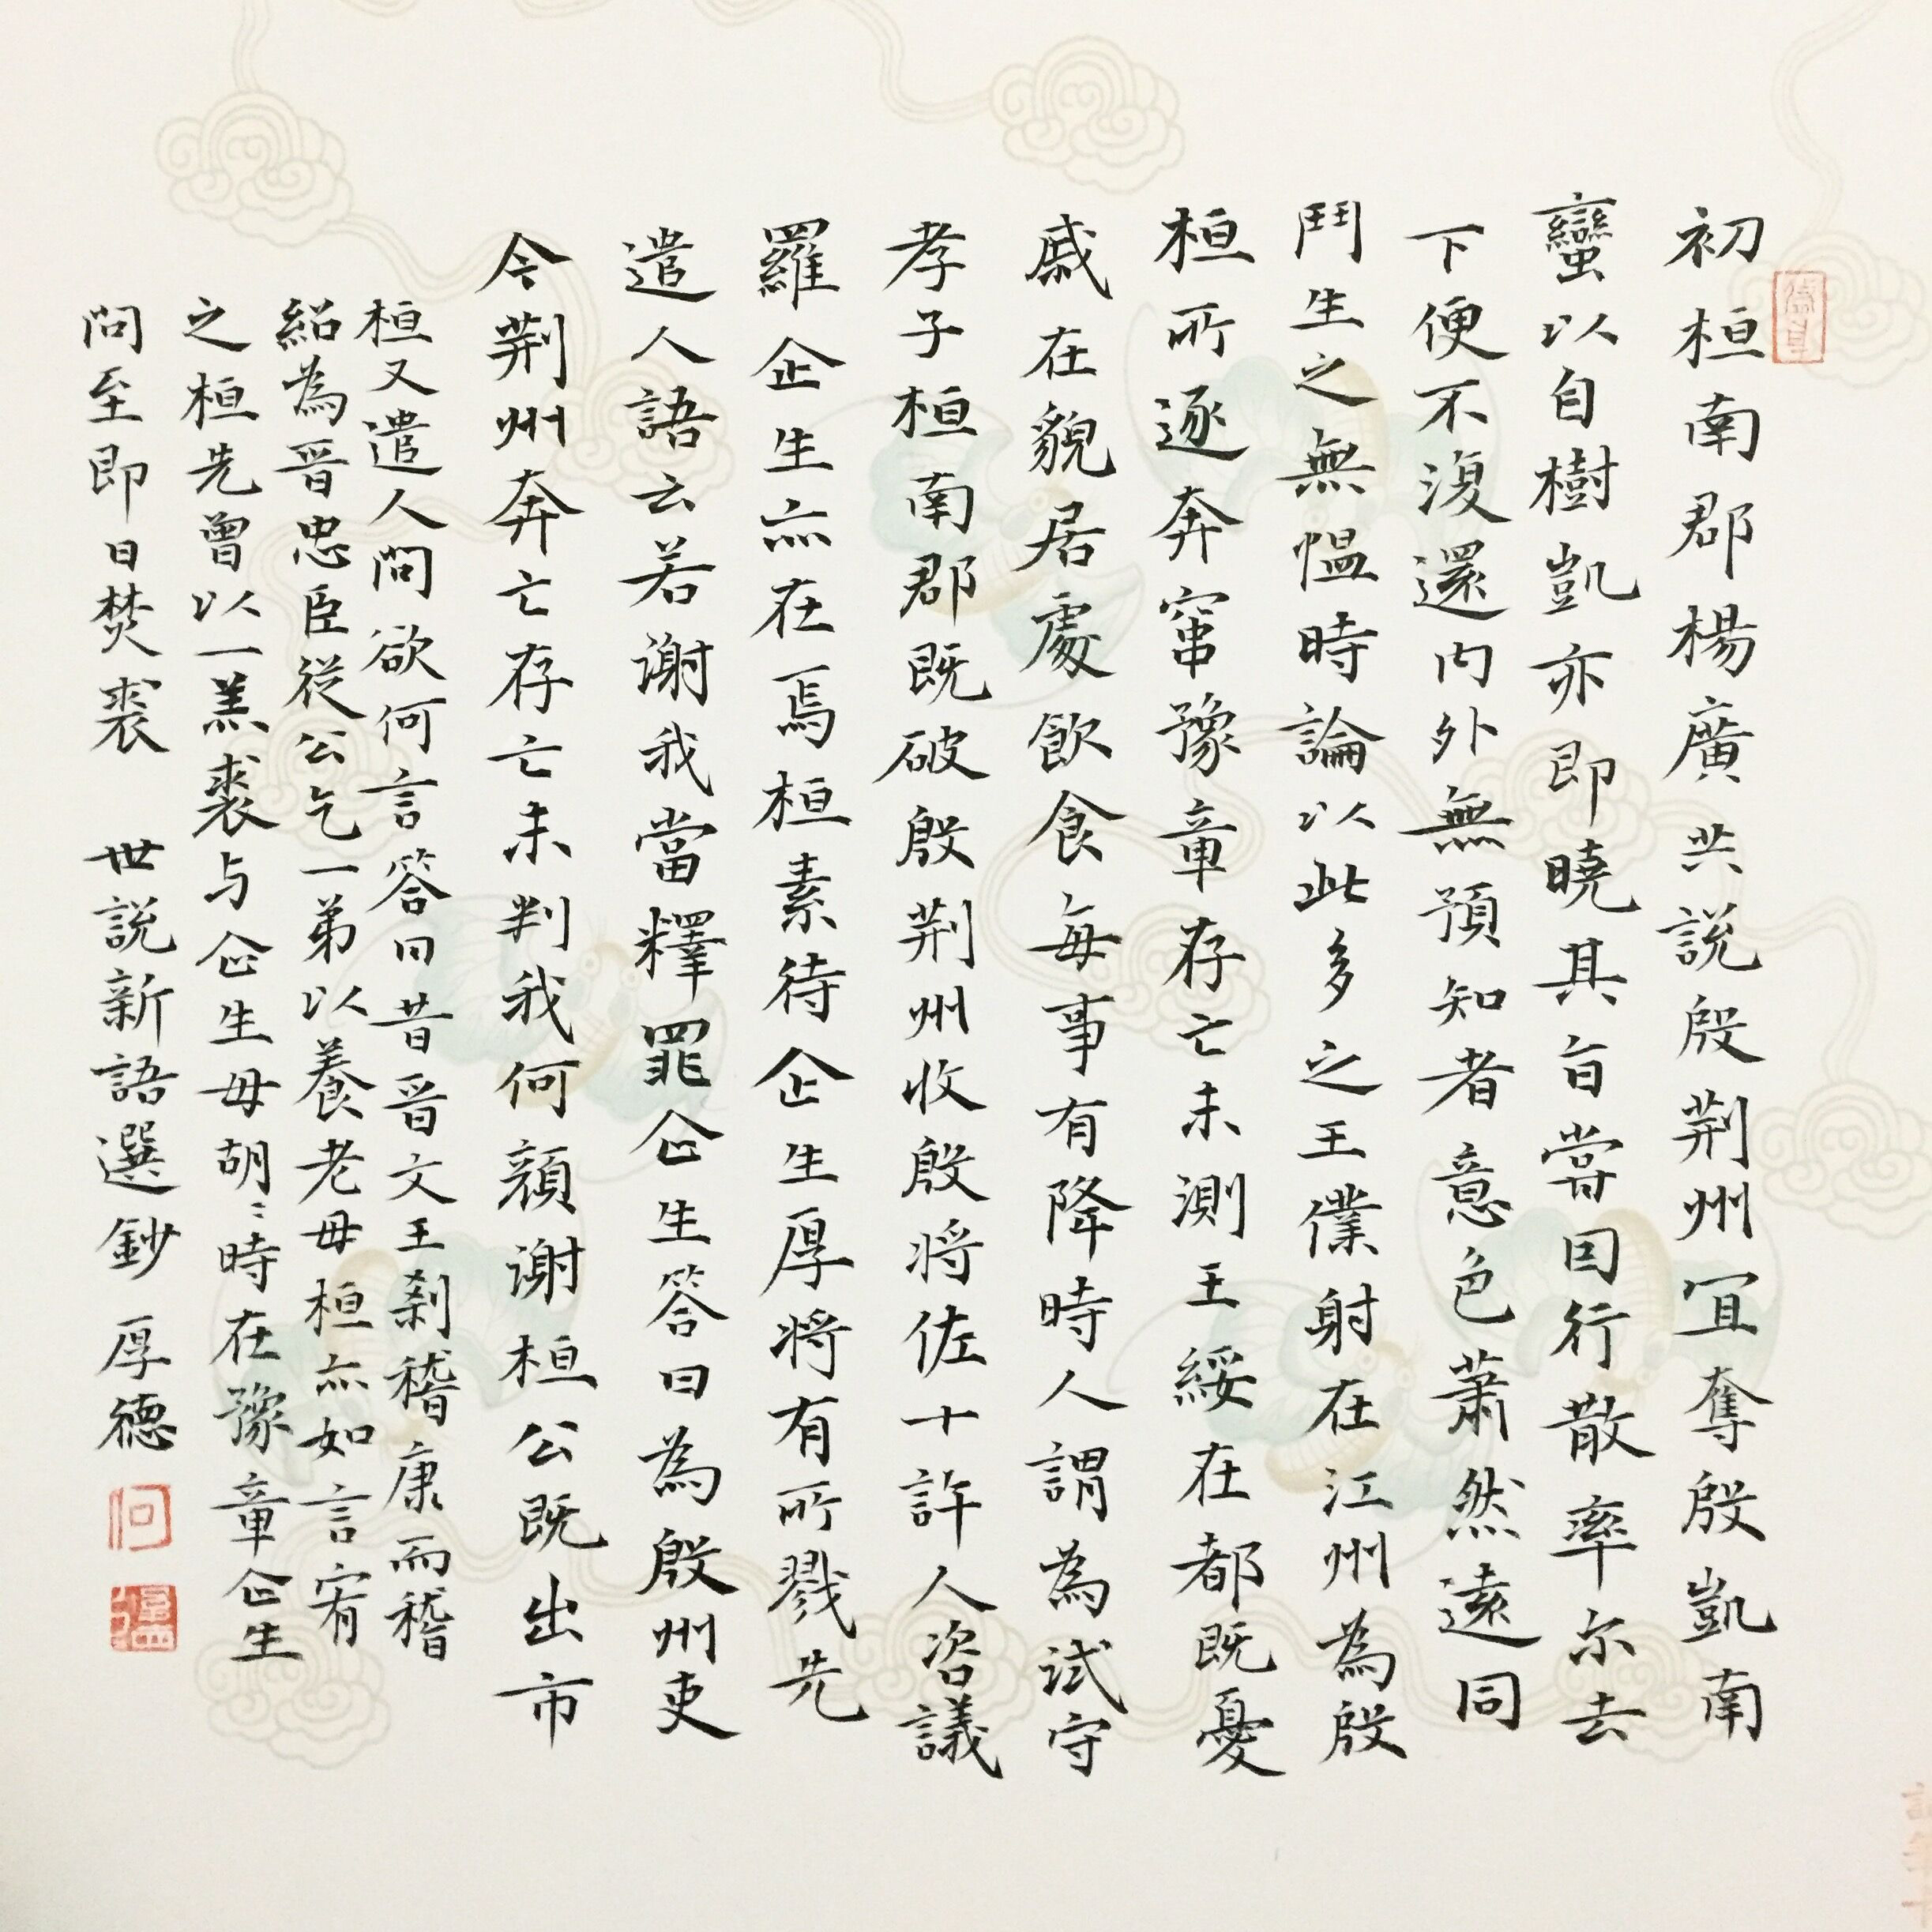 初桓南郡楊廣共説殷荆州冝奪殷凱南
蠻以自樹凱亦即曉其旨嘗因行散率尒去
下便不復還内外無預知者意色蕭然遠同
鬥生之無愠時論以此多之王僕射在江州為殷
桓所逐奔竄豫章存亡未測王綏在都既憂
戚在貌居處飲食每事有降時人謂為試守
孝子桓南郡既破殷荆州收殷将佐十許人咨議
羅企生亦在焉桓素待企生厚将有所戮先
遣人語云若谢我當釋罪企生答曰為殷州吏
今荆州奔亡存亡未判我何顔谢桓公既出市
桓又遣人問欲何言答曰昔晋文王刹嵇康而嵇
紹為晋忠臣従公乞一弟以養老母桓亦如言宥
之桓先曾以一羔裘与企生母胡〻時在豫章企生
問至即日焚裘 世説新語選鈔 厚德
何